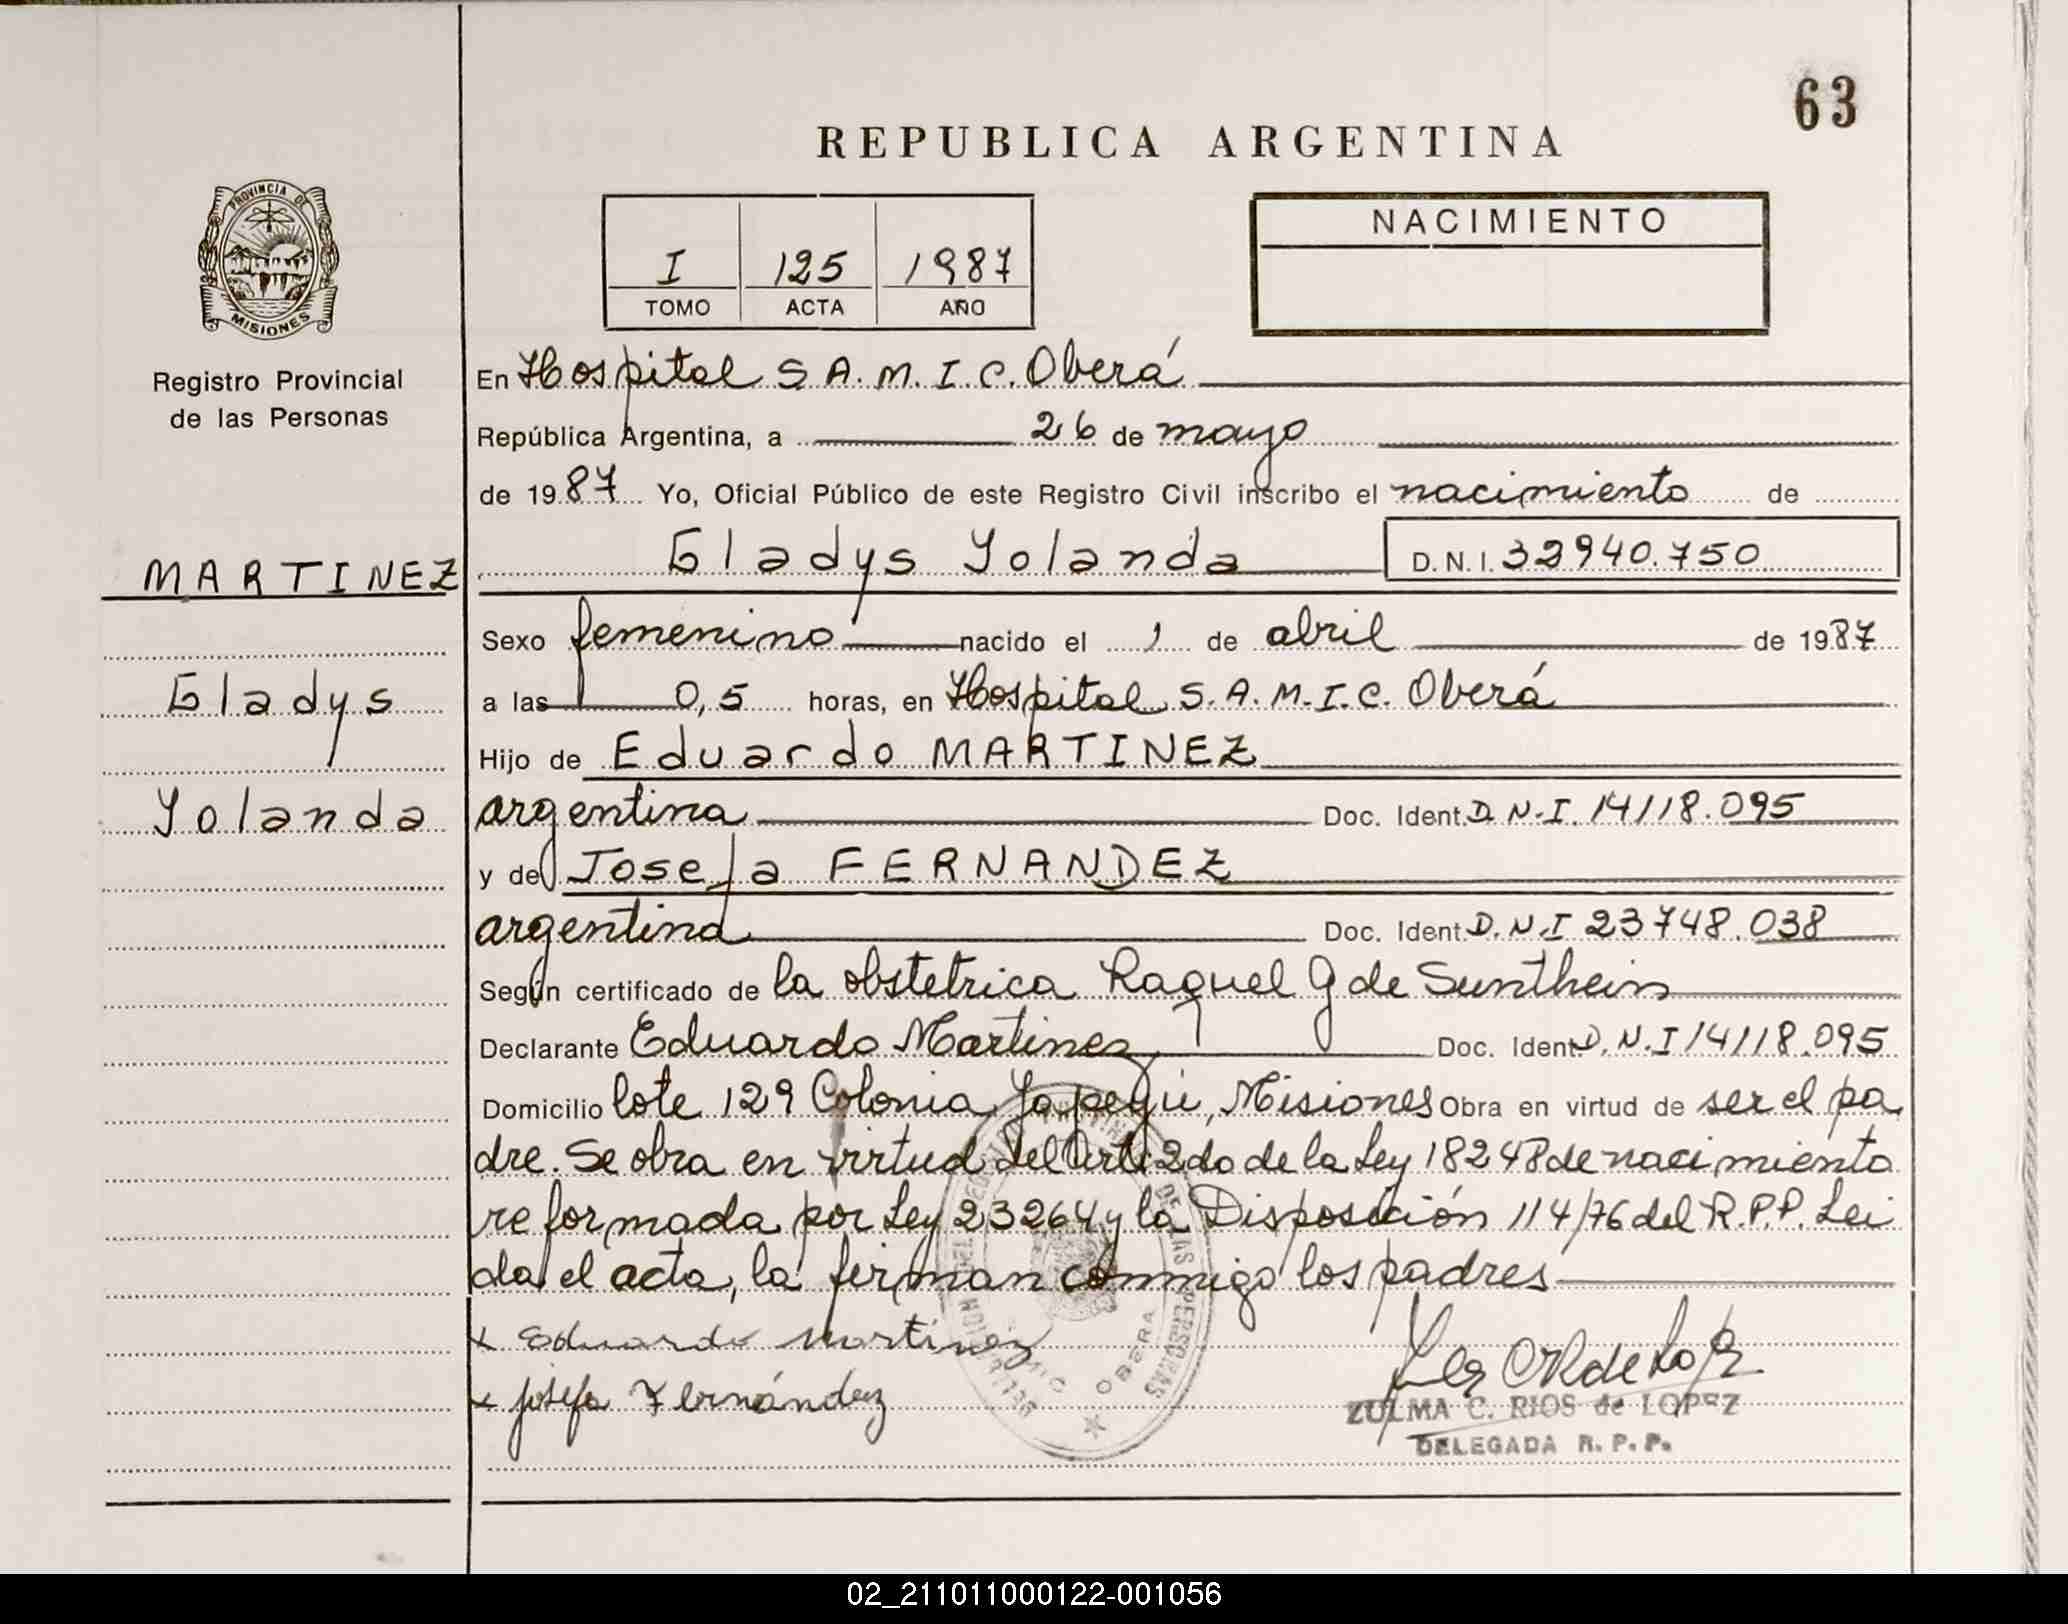 63
REPUBLICA ARGENTINA
PROVINCIA DE
MISIONES
Registro Provincial
de las Personas
I 125 1987
TOMO ACTA AÑO
NACIMIENTO
En Hospital S.A.M.I.C. Oberá
República Argentina, a 26 de mayo
de 1987 Yo, Oficial Público de este Registro Civil inscribo el nacimiento de
MARTINEZ
Gladys
Yolanda
Gladys Yolanda D.N.I. 32940.750
Sexo femenino nacido el 1 de abril de 1987
a las 0,5 horas, en Hospital S.A.M.I.C. Oberá
Hijo de Eduardo MARTINEZ
argentina Doc. Ident. D.N.I. 14118.095
y de Josefa FERNANDEZ
argentina Doc. Ident. D.N.I 23748.038
Según certificado de la obstetrica Raquel G de Sunthein
Declarante Eduardo Martinez Doc. Ident. D.N.I 14118.095
Domicilio lote 129 Colonia Yapeyú, Misiones Obra en virtud de ser el pa
dre. Se obra en virtud del Art. 2do de la Ley 18248 de nacimiento
reformada por Ley 23264 y la Disposición 114/76 del R.P.P. Lei
da el acta, la firman conmigo los padres
x Eduardo Martinez
x Josefa Fernández
ZULMA C. RIOS de LOPEZ
DELEGADA R.P.P.
DE LAS PERSONAS
OBERA
02_211011000122-001056